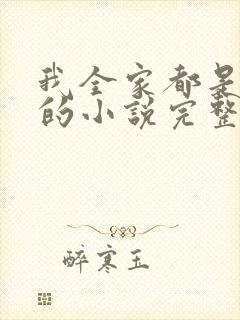 我全家都是
的小说完整
醉寒玉